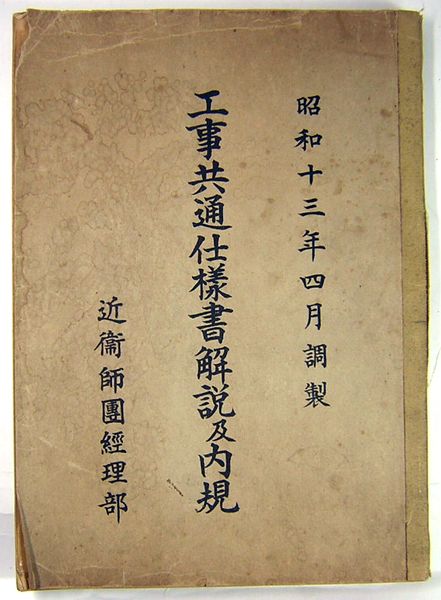 昭和十三年四月調製
工事共通仕樣書解説及内規
近衞師團經理部